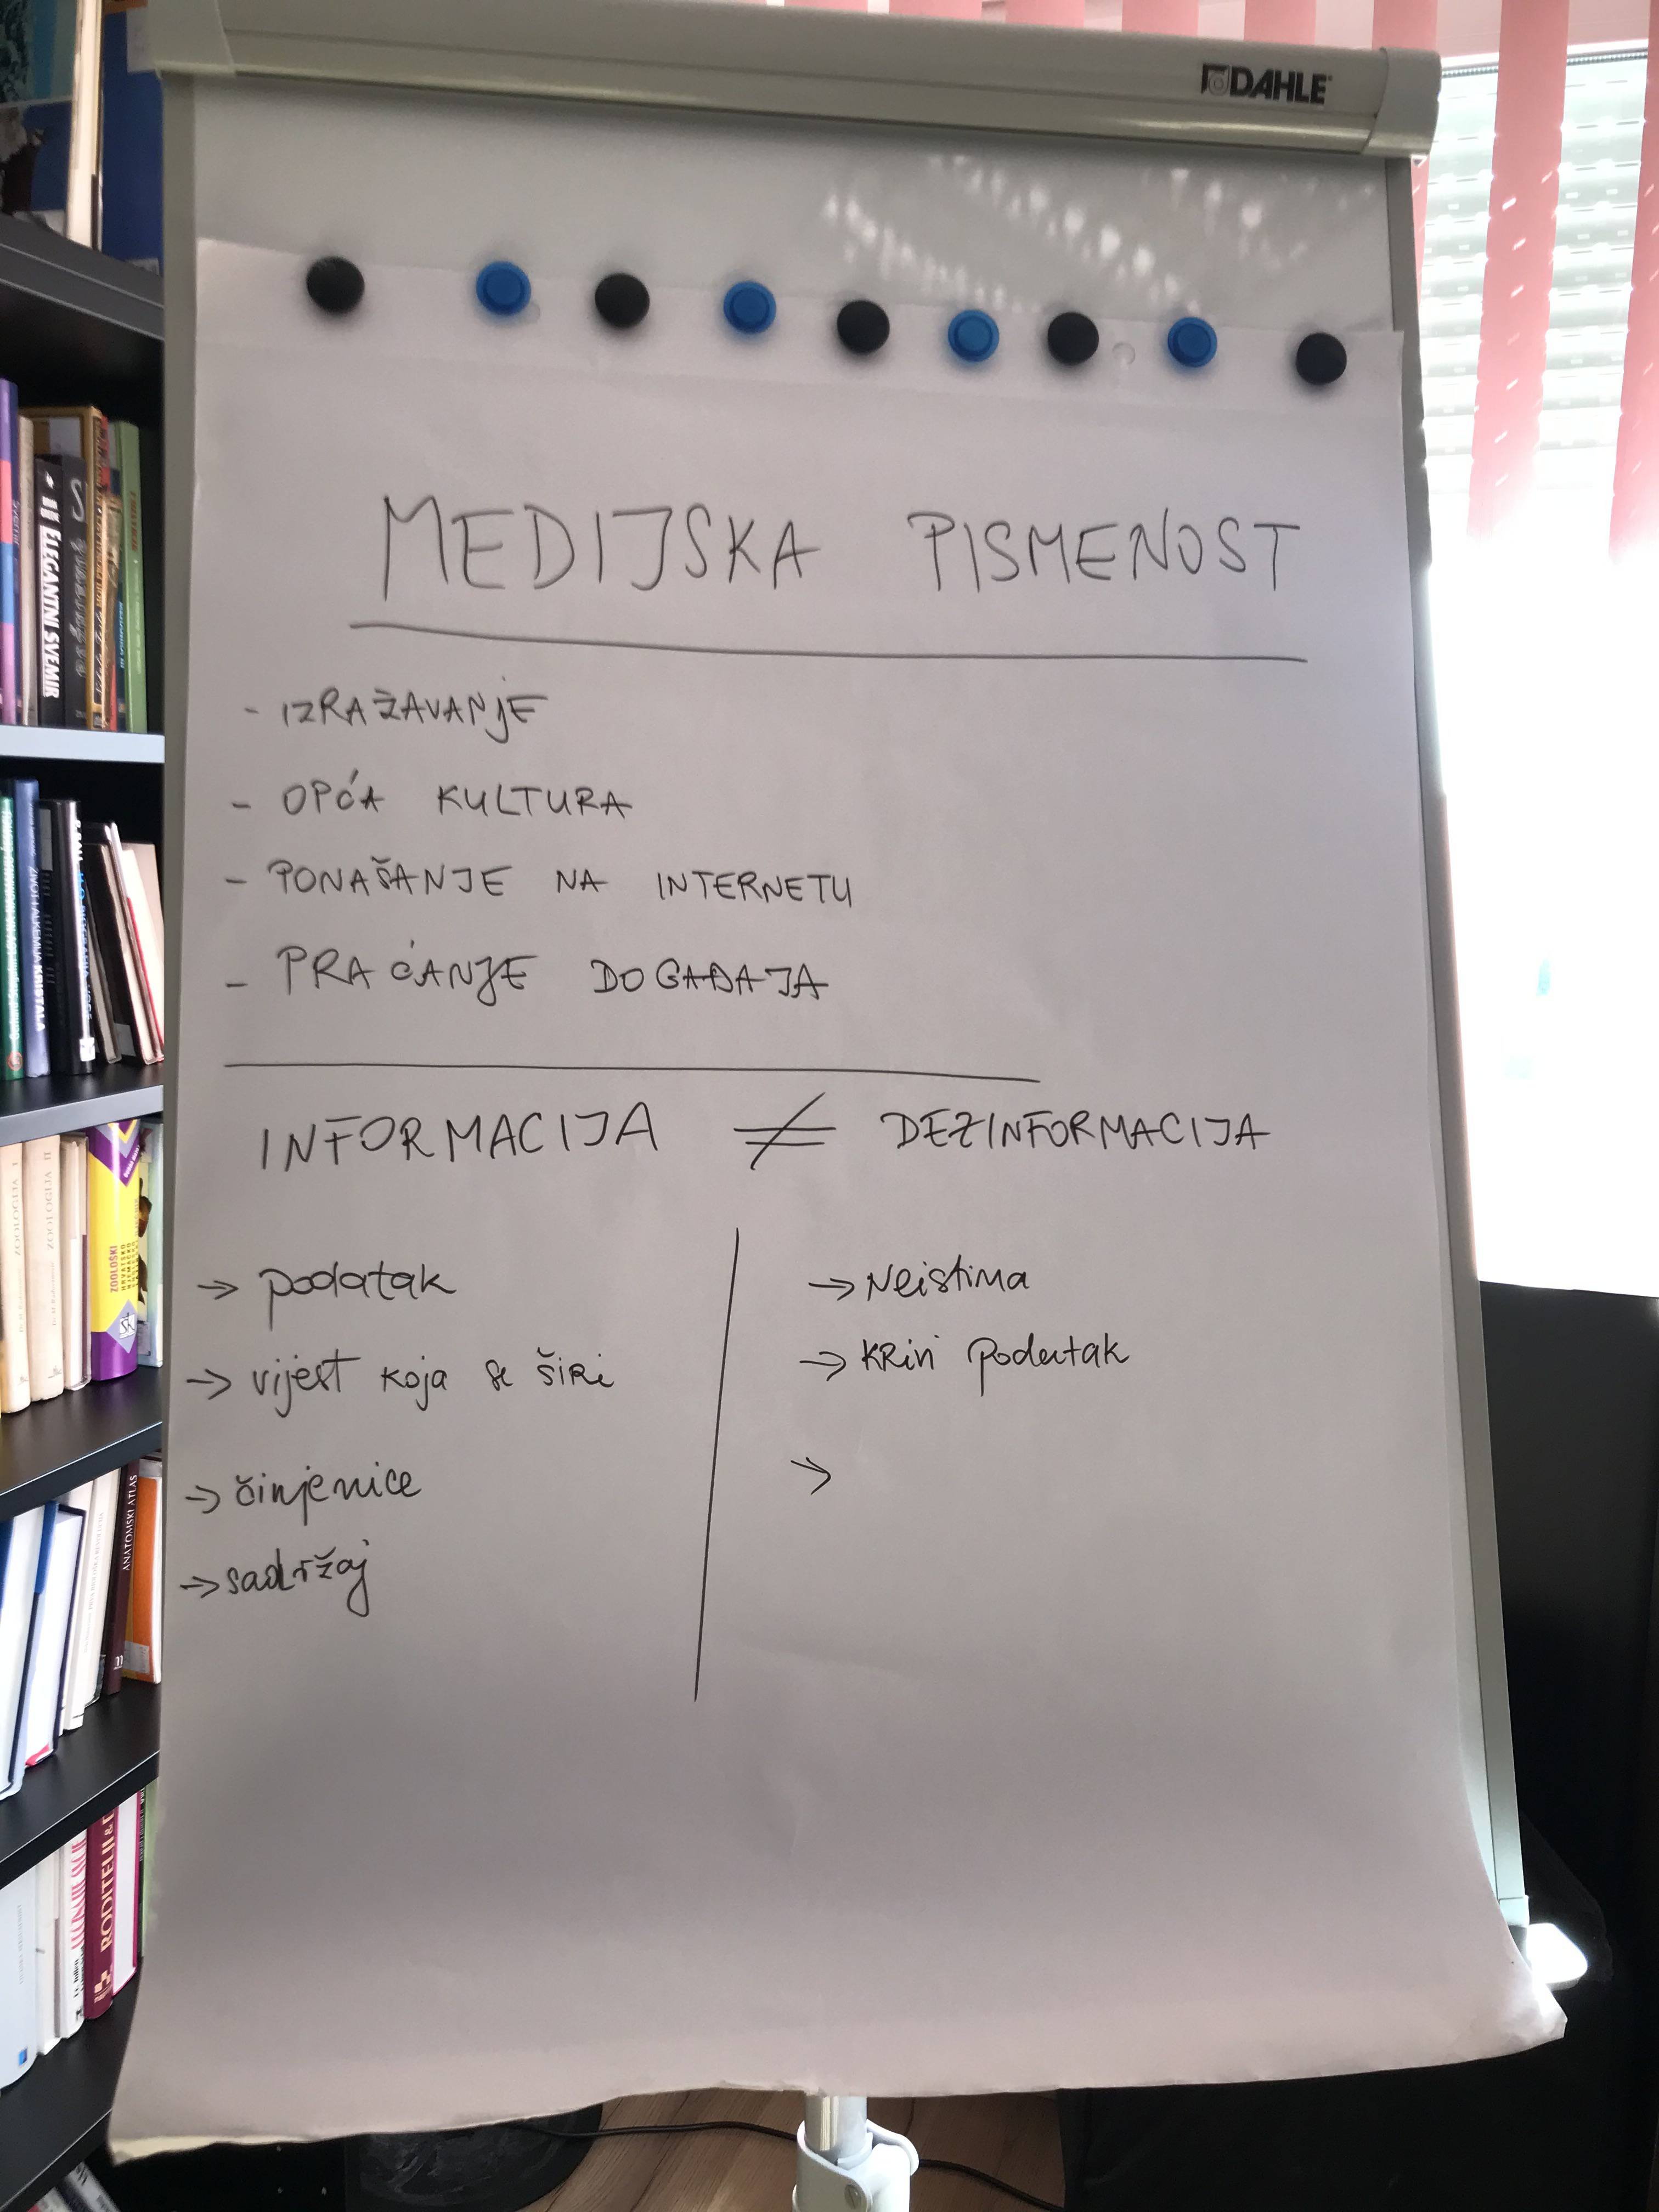 DAHLE
MEDIJSKA PISMENOST
- IZRAŽAVANJE
- OPĆA KULTURA
- PONAŠANJE NA INTERNETU
- PRAĆANJE DOGAĐAJA
INFORMACIJA ≠ DEZINFORMACIJA
→ podatak
→ vijest koja se širi
→ činjenice
→ sadržaj
→ Neistina
→ krivi podatak
→
ELEGANTNI SVEMIR
KRISTALA
ZOOLOGIJA I
ZOOLOGIJA II
ZOOLOŠKI
HRVATSKO
NJEMAČKO
ANATOMSKI ATLAS
RODITELJI &